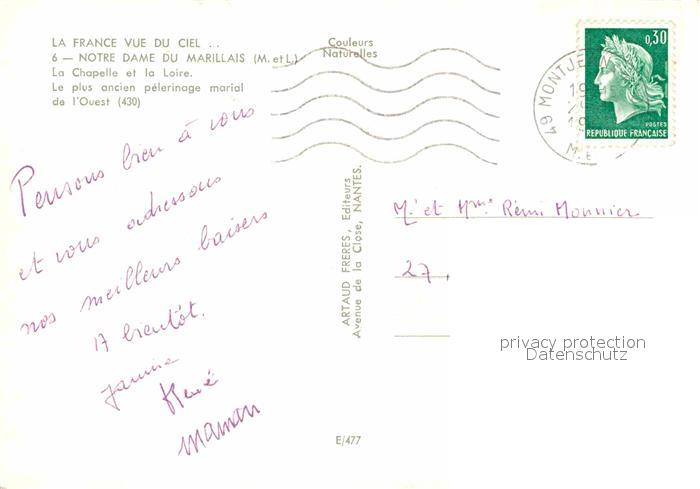 LA FRANCE VUE DU CIEL ...
6 — NOTRE DAME DU MARILLAIS (M. et L.)
La Chapelle et la Loire.
Le plus ancien pélerinage marial
de l'Ouest (430)
Couleurs
Naturelles
0,30
POSTES
REPUBLIQUE FRANÇAISE
49 MONTJEAN
Pensons bien à vous
et vous adressons
nos meilleurs baisers
A bientôt.
Janine
René
maman
ARTAUD FRERES, Editeurs
Avenue de la Close, NANTES.
M. et Mme Rémi Monnier
27,
privacy protection
Datenschutz
E/477